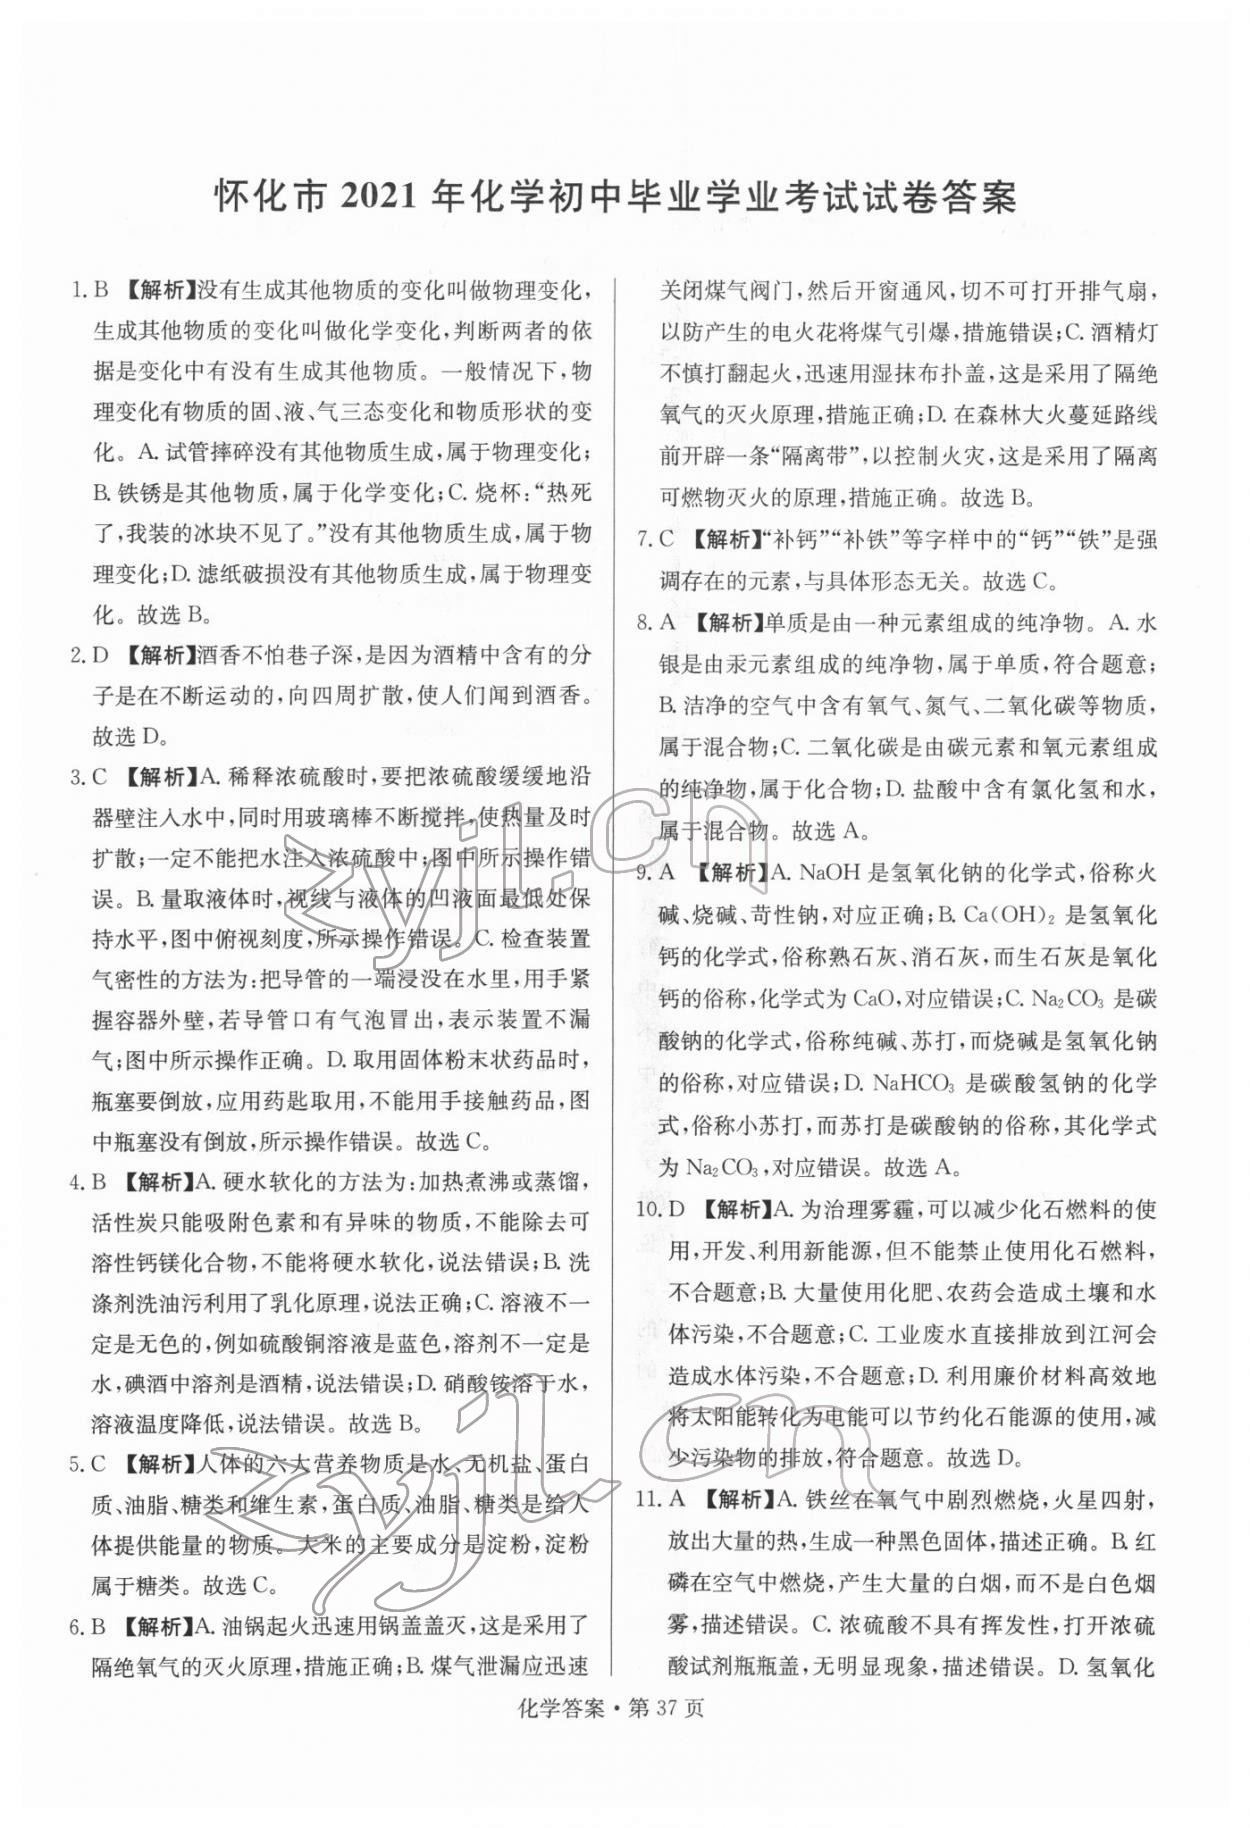 怀化市 2021 年化学初中毕业学业考试试卷答案
1. B 【解析】没有生成其他物质的变化叫做物理变化,
生成其他物质的变化叫做化学变化,判断两者的依
据是变化中有没有生成其他物质。一般情况下,物
理变化有物质的固、液、气三态变化和物质形状的变
化。A. 试管摔碎没有其他物质生成,属于物理变化;
B. 铁锈是其他物质,属于化学变化;C. 烧杯:“热死
了,我装的冰块不见了。”没有其他物质生成,属于物
理变化;D. 滤纸破损没有其他物质生成,属于物理变
化。故选 B。
2. D 【解析】酒香不怕巷子深,是因为酒精中含有的分
子是在不断运动的,向四周扩散,使人们闻到酒香。
故选 D。
3. C 【解析】A. 稀释浓硫酸时,要把浓硫酸缓缓地沿
器壁注入水中,同时用玻璃棒不断搅拌,使热量及时
扩散;一定不能把水注入浓硫酸中;图中所示操作错
误。B. 量取液体时,视线与液体的凹液面最低处保
持水平,图中俯视刻度,所示操作错误。C. 检查装置
气密性的方法为:把导管的一端浸没在水里,用手紧
握容器外壁,若导管口有气泡冒出,表示装置不漏
气;图中所示操作正确。D. 取用固体粉末状药品时,
瓶塞要倒放,应用药匙取用,不能用手接触药品,图
中瓶塞没有倒放,所示操作错误。故选 C。
4. B 【解析】A. 硬水软化的方法为:加热煮沸或蒸馏,
活性炭只能吸附色素和有异味的物质,不能除去可
溶性钙镁化合物,不能将硬水软化,说法错误;B. 洗
涤剂洗油污利用了乳化原理,说法正确;C. 溶液不一
定是无色的,例如硫酸铜溶液是蓝色,溶剂不一定是
水,碘酒中溶剂是酒精,说法错误;D. 硝酸铵溶于水,
溶液温度降低,说法错误。故选 B。
5. C 【解析】人体的六大营养物质是水、无机盐、蛋白
质、油脂、糖类和维生素,蛋白质、油脂、糖类是给人
体提供能量的物质。大米的主要成分是淀粉,淀粉
属于糖类。故选 C。
6. B 【解析】A. 油锅起火迅速用锅盖盖灭,这是采用了
隔绝氧气的灭火原理,措施正确;B. 煤气泄漏应迅速
关闭煤气阀门,然后开窗通风,切不可打开排气扇,
以防产生的电火花将煤气引爆,措施错误;C. 酒精灯
不慎打翻起火,迅速用湿抹布扑盖,这是采用了隔绝
氧气的灭火原理,措施正确;D. 在森林大火蔓延路线
前开辟一条“隔离带”,以控制火灾,这是采用了隔离
可燃物灭火的原理,措施正确。故选 B。
7. C 【解析】“补钙”“补铁”等字样中的“钙”“铁”是强
调存在的元素,与具体形态无关。故选 C。
8. A 【解析】单质是由一种元素组成的纯净物。A. 水
银是由汞元素组成的纯净物,属于单质,符合题意;
B. 洁净的空气中含有氧气、氮气、二氧化碳等物质,
属于混合物;C. 二氧化碳是由碳元素和氧元素组成
的纯净物,属于化合物;D. 盐酸中含有氯化氢和水,
属于混合物。故选 A。
9. A 【解析】A. NaOH 是氢氧化钠的化学式,俗称火
碱、烧碱、苛性钠,对应正确;B. Ca(OH)₂ 是氢氧化
钙的化学式,俗称熟石灰、消石灰,而生石灰是氧化
钙的俗称,化学式为 CaO,对应错误;C. Na₂CO₃ 是碳
酸钠的化学式,俗称纯碱、苏打,而烧碱是氢氧化钠
的俗称,对应错误;D. NaHCO₃ 是碳酸氢钠的化学
式,俗称小苏打,而苏打是碳酸钠的俗称,其化学式
为 Na₂CO₃,对应错误。故选 A。
10. D 【解析】A. 为治理雾霾,可以减少化石燃料的使
用,开发、利用新能源,但不能禁止使用化石燃料,
不合题意;B. 大量使用化肥、农药会造成土壤和水
体污染,不合题意;C. 工业废水直接排放到江河会
造成水体污染,不合题意;D. 利用廉价材料高效地
将太阳能转化为电能可以节约化石能源的使用,减
少污染物的排放,符合题意。故选 D。
11. A 【解析】A. 铁丝在氧气中剧烈燃烧,火星四射,
放出大量的热,生成一种黑色固体,描述正确。B. 红
磷在空气中燃烧,产生大量的白烟,而不是白色烟
雾,描述错误。C. 浓硫酸不具有挥发性,打开浓硫
酸试剂瓶瓶盖,无明显现象,描述错误。D. 氢氧化
化学答案·第 37 页
zyjl.cn
zyjl.cn